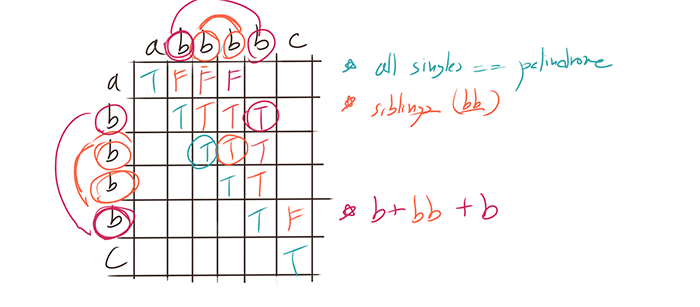 a b b b b c
a T F F F
b T T T T
b T T T
b T T
b T F
c T
* all singles == palindrome
* siblings (bb)
* b+bb+b